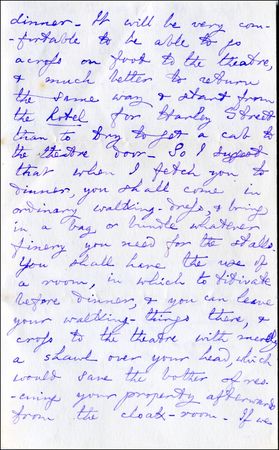 dinner — It will be very com-
-fortable to be able to go
across on foot to the theatre,
& much better to return
the same way & start from
the hotel for Stanley Street
than to try to get a cab to
the theatre door — So I suggest
that when I fetch you to
dinner, you shall come in
ordinary walking-dress, & bring
in a bag or bundle whatever
finery you need for the stalls.
You shall have the use of
a room, in which to titivate
before dinner, & you can leave
your walking-things there, &
cross to the theatre with merely
a shawl over your head, which
would save the bother of res-
-cuing your property afterwards
from the cloak-room. If we